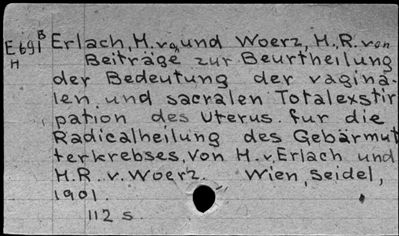 E691 B Erlach, H. v., und Woerz, H. R. von
H Beiträge zur Beurtheilung
der Bedeutung der vagina-
len und sacralen Totalexstir
pation des Uterus für die
Radicalheilung des Gebärmut
terkrebses, von H. v. Erlach und
H. R. v. Woerz. Wien, Seidel,
1901.
112 s.